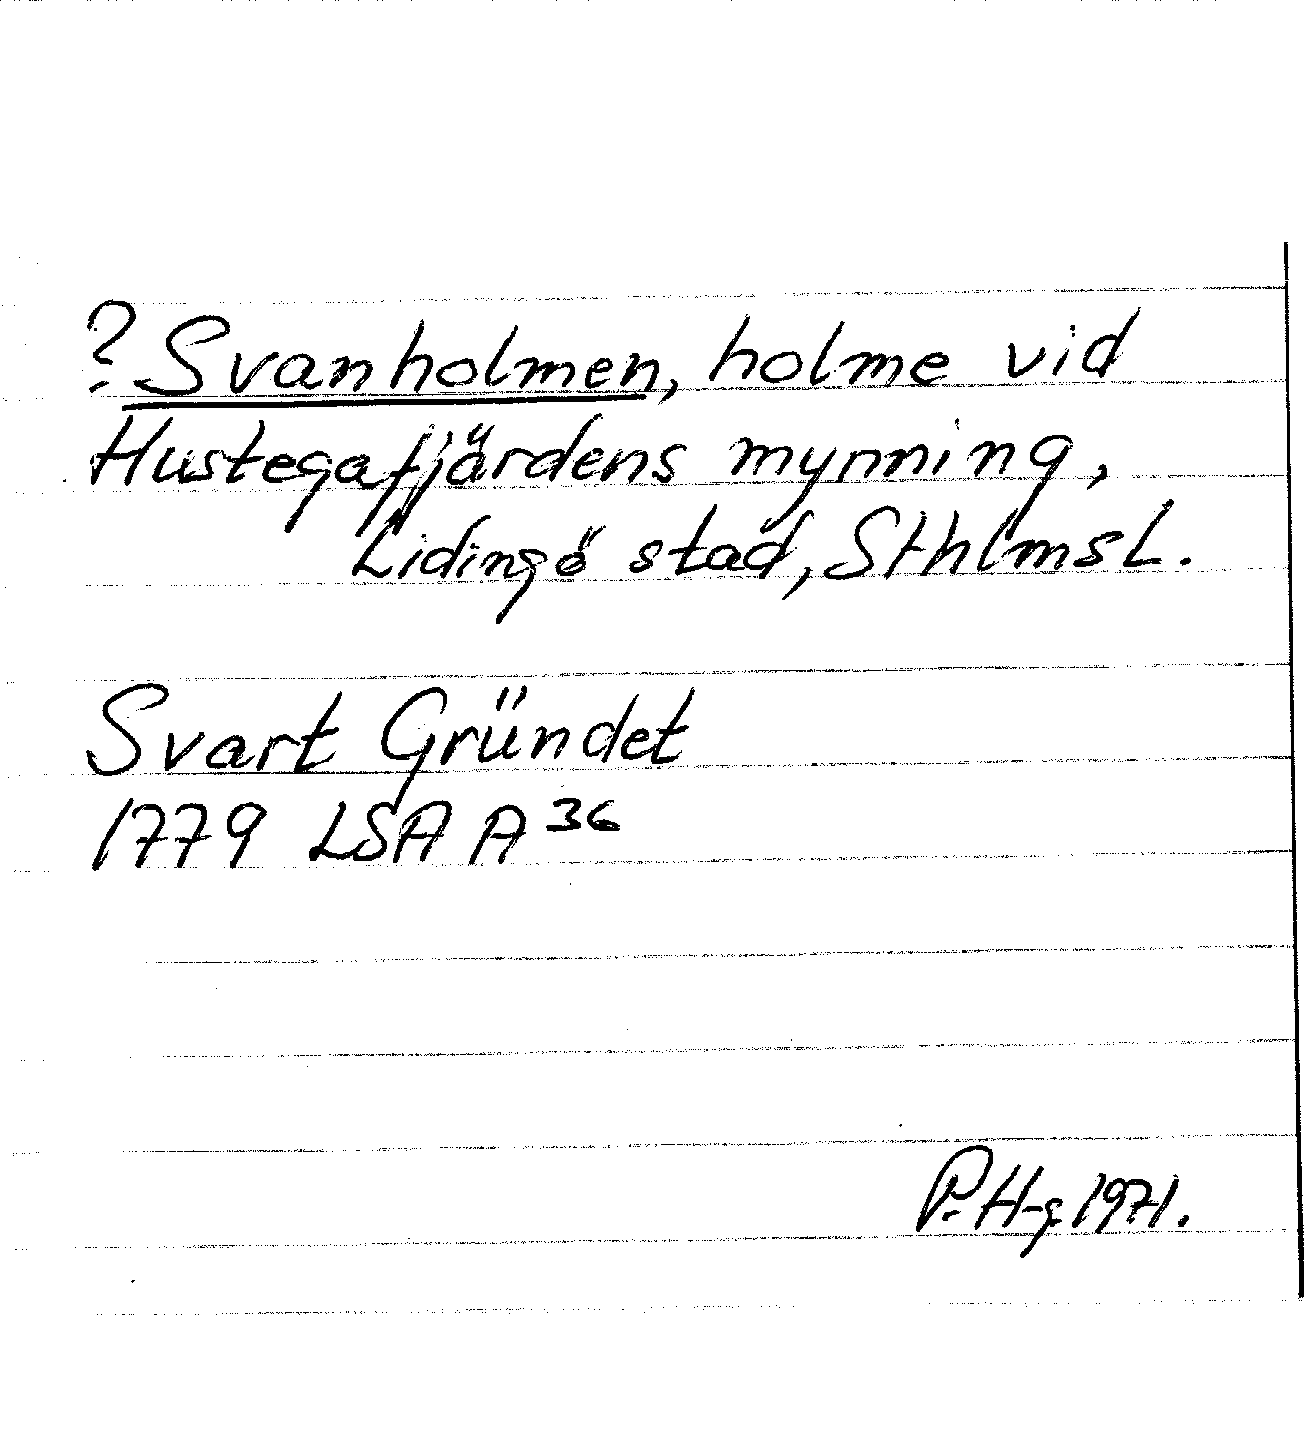 ? Svanholmen, holme vid
Hustegafjärdens mynning,
Lidingö stad, Sthlmsl.
Svart Gründet
1779 LSA A 36
P. H-g. 1971.